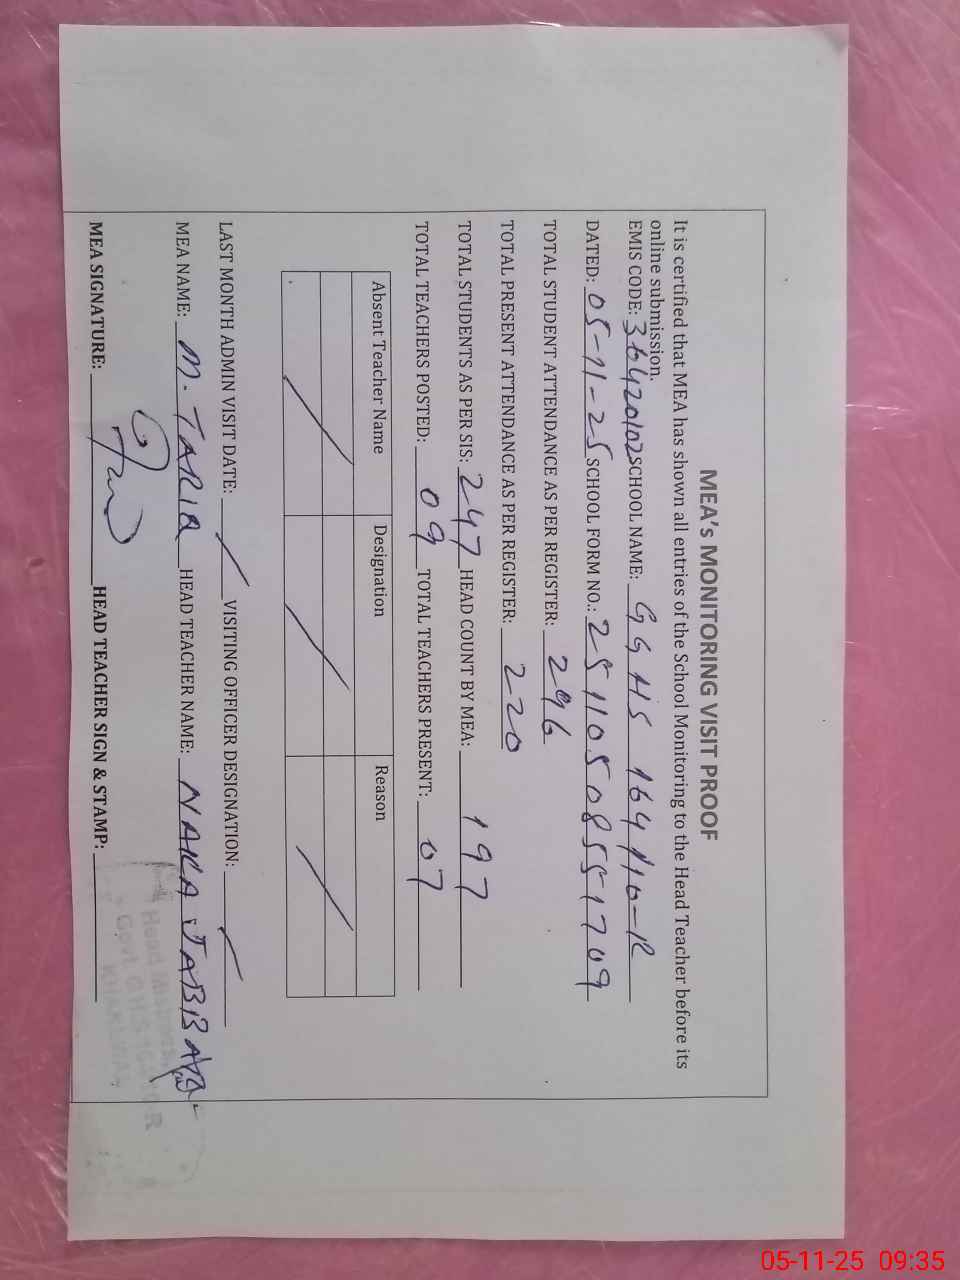 MEA's MONITORING VISIT PROOF
It is certified that MEA has shown all entries of the School Monitoring to the Head Teacher before its
online submission.
EMIS CODE: 36420102 SCHOOL NAME: GGHS 164/10-R
DATED: 05-11-25 SCHOOL FORM NO.: 251105085551709
TOTAL STUDENT ATTENDANCE AS PER REGISTER: 296
TOTAL PRESENT ATTENDANCE AS PER REGISTER: 220
TOTAL STUDENTS AS PER SIS: 247 HEAD COUNT BY MEA: 197
TOTAL TEACHERS POSTED: 09 TOTAL TEACHERS PRESENT: 07
Absent Teacher Name Designation Reason
LAST MONTH ADMIN VISIT DATE: VISITING OFFICER DESIGNATION:
MEA NAME: M. TARIQ HEAD TEACHER NAME: JABBAR
MEA SIGNATURE: HEAD TEACHER SIGN & STAMP:
Head
Govt.
05-11-25 09:35